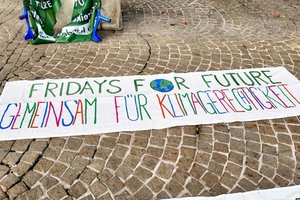 FRIDAYS FOR FUTURE
GEMEINSAM FÜR KLIMAGERECHTIGKEIT